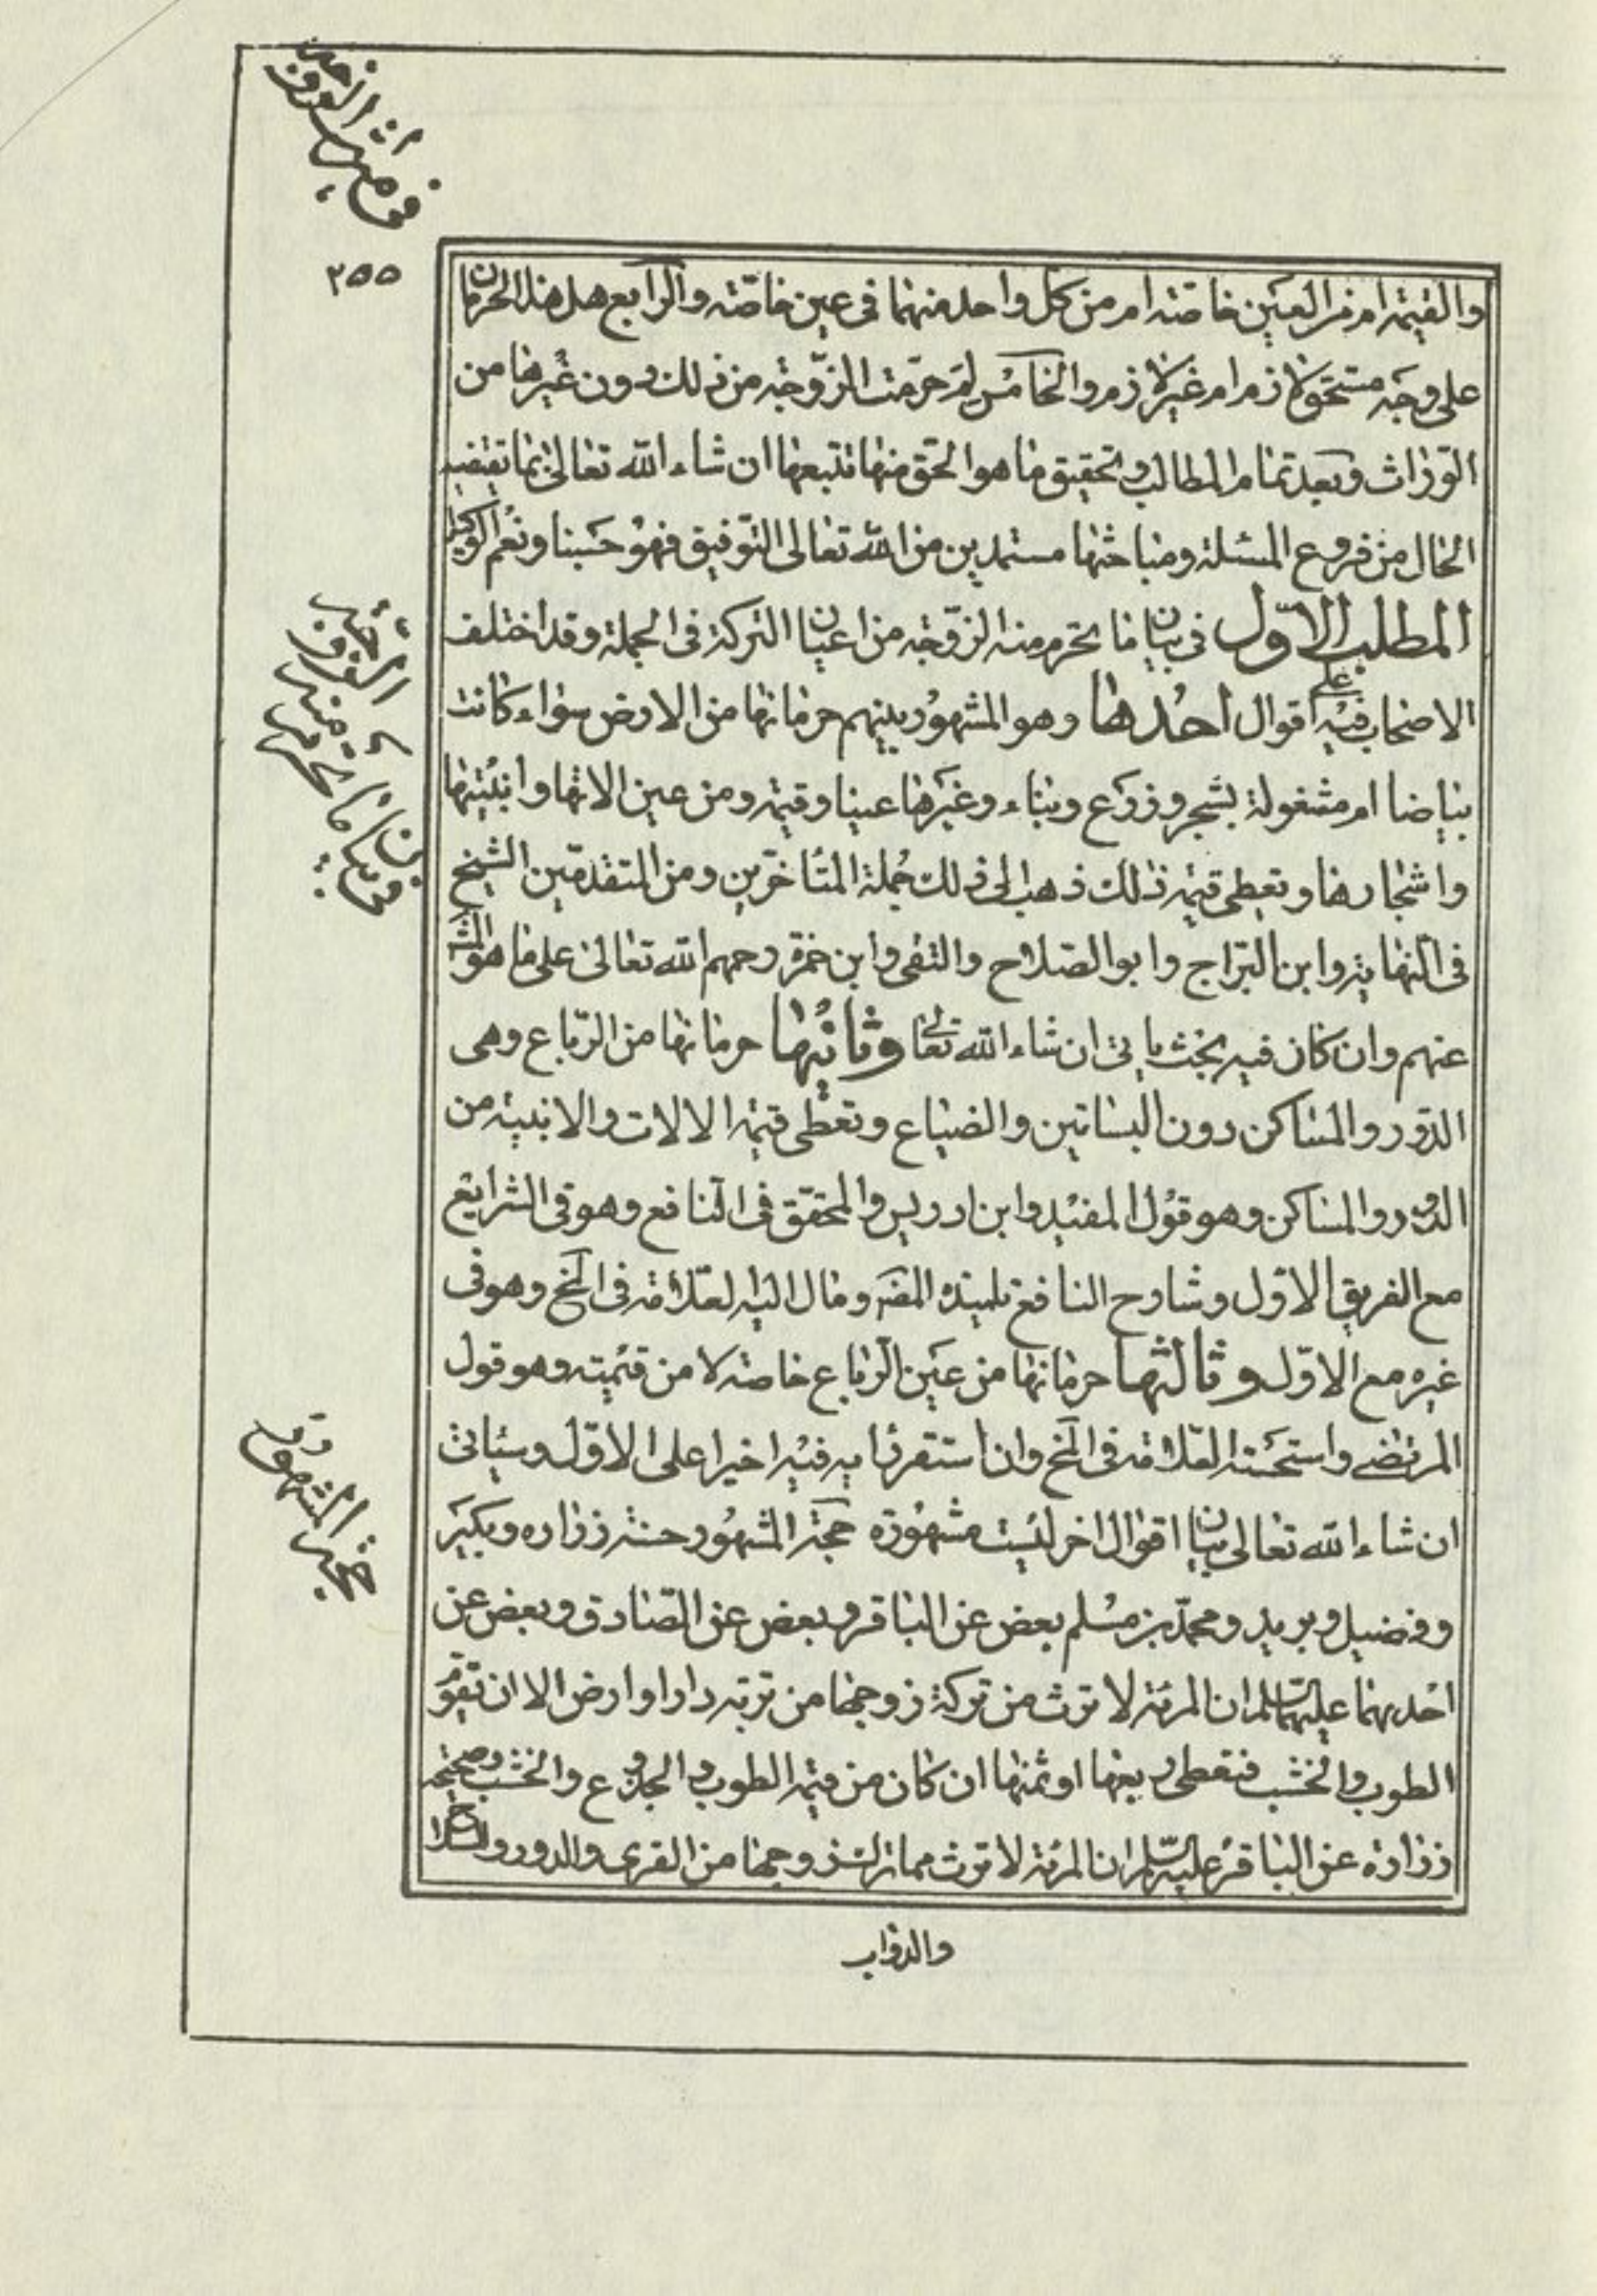 ٢٥٥
والقيمة ام من العين خاصّة ام من كل واحد منهما فى عين خاصّة والرابع هل هذا الحرمان
على وجه مستحق لازم ام غير لازم والخامس لم حرمت الزّوجة من ذلك دون غيرها من
الورّاث وبعد تمام المطالب وتحقيق ما هو الحق منها نتبعها ان شاء الله تعالى بما تقتضيه
الحال من فروع المسئلة ومباحثها مستمدين من الله تعالى التّوفيق فهو حسبنا ونعم الوكيل
المطلب الاوّل فى بيان ما تحرم منه الزّوجة من اعيان التركة فى الجملة وقد اختلف
الاصحاب فيه على اقوال احدها وهو المشهور بينهم حرمانها من الارض سواء كانت
بياضا ام مشغولة بشجر وزرع وبناء وغيرها عينا وقيمة ومن عين الاتها وابنيتها
واشجارها وتعطى قيمة ذلك ذهب الى ذلك جملة المتأخرّين ومن المتقدمّين الشيخ
فى النّهاية وابن البرّاج وابو الصّلاح والتقى وابن حمزة رحمهم الله تعالى على ما هو المش
عنهم وان كان فيه بحث ياتى ان شاء الله تعالى وثانيها حرمانها من الرّباع وهى
الدّور والمساكن دون البساتين والضياع وتعطى قيمة الالات والابنية من
الدّور والمساكن وهو قول المفيد وابن ادريس والمحقّق فى النّافع وهو فى الشرايع
مع الفريق الاوّل وشارح النافع تلميذه المصّ ومال اليه العلّامة فى المخ وهو فى
غيره مع الاوّل وثالثها حرمانها من عين الرّباع خاصة لا من قيمته وهو قول
المرتضى واستحسنه العلّامة فى المخ وان استقر رأيه فيه اخيرا على الاوّل وسيأتى
ان شاء الله تعالى بيان اقوال اخر ليست مشهورة حجّة المشهور حسنة زرارة وبكير
وفضيل وبريد ومحمّد بن مسلم بعض عن الباقر وبعض عن الصّادق وبعض عن
احدهما عليهما السّلم ان المرئة لا ترث من تركة زوجها من تربة دار او ارض الا ان تقوّم
الطوب والخشب فتعطى ربعها او ثمنها ان كان من قيمة الطوب والجذوع والخشب وصحيحة
زرارة عن الباقر عليه السّلم ان المرئة لا ترث مما ترك زوجها من القرى والدور والسلاح
والدواب